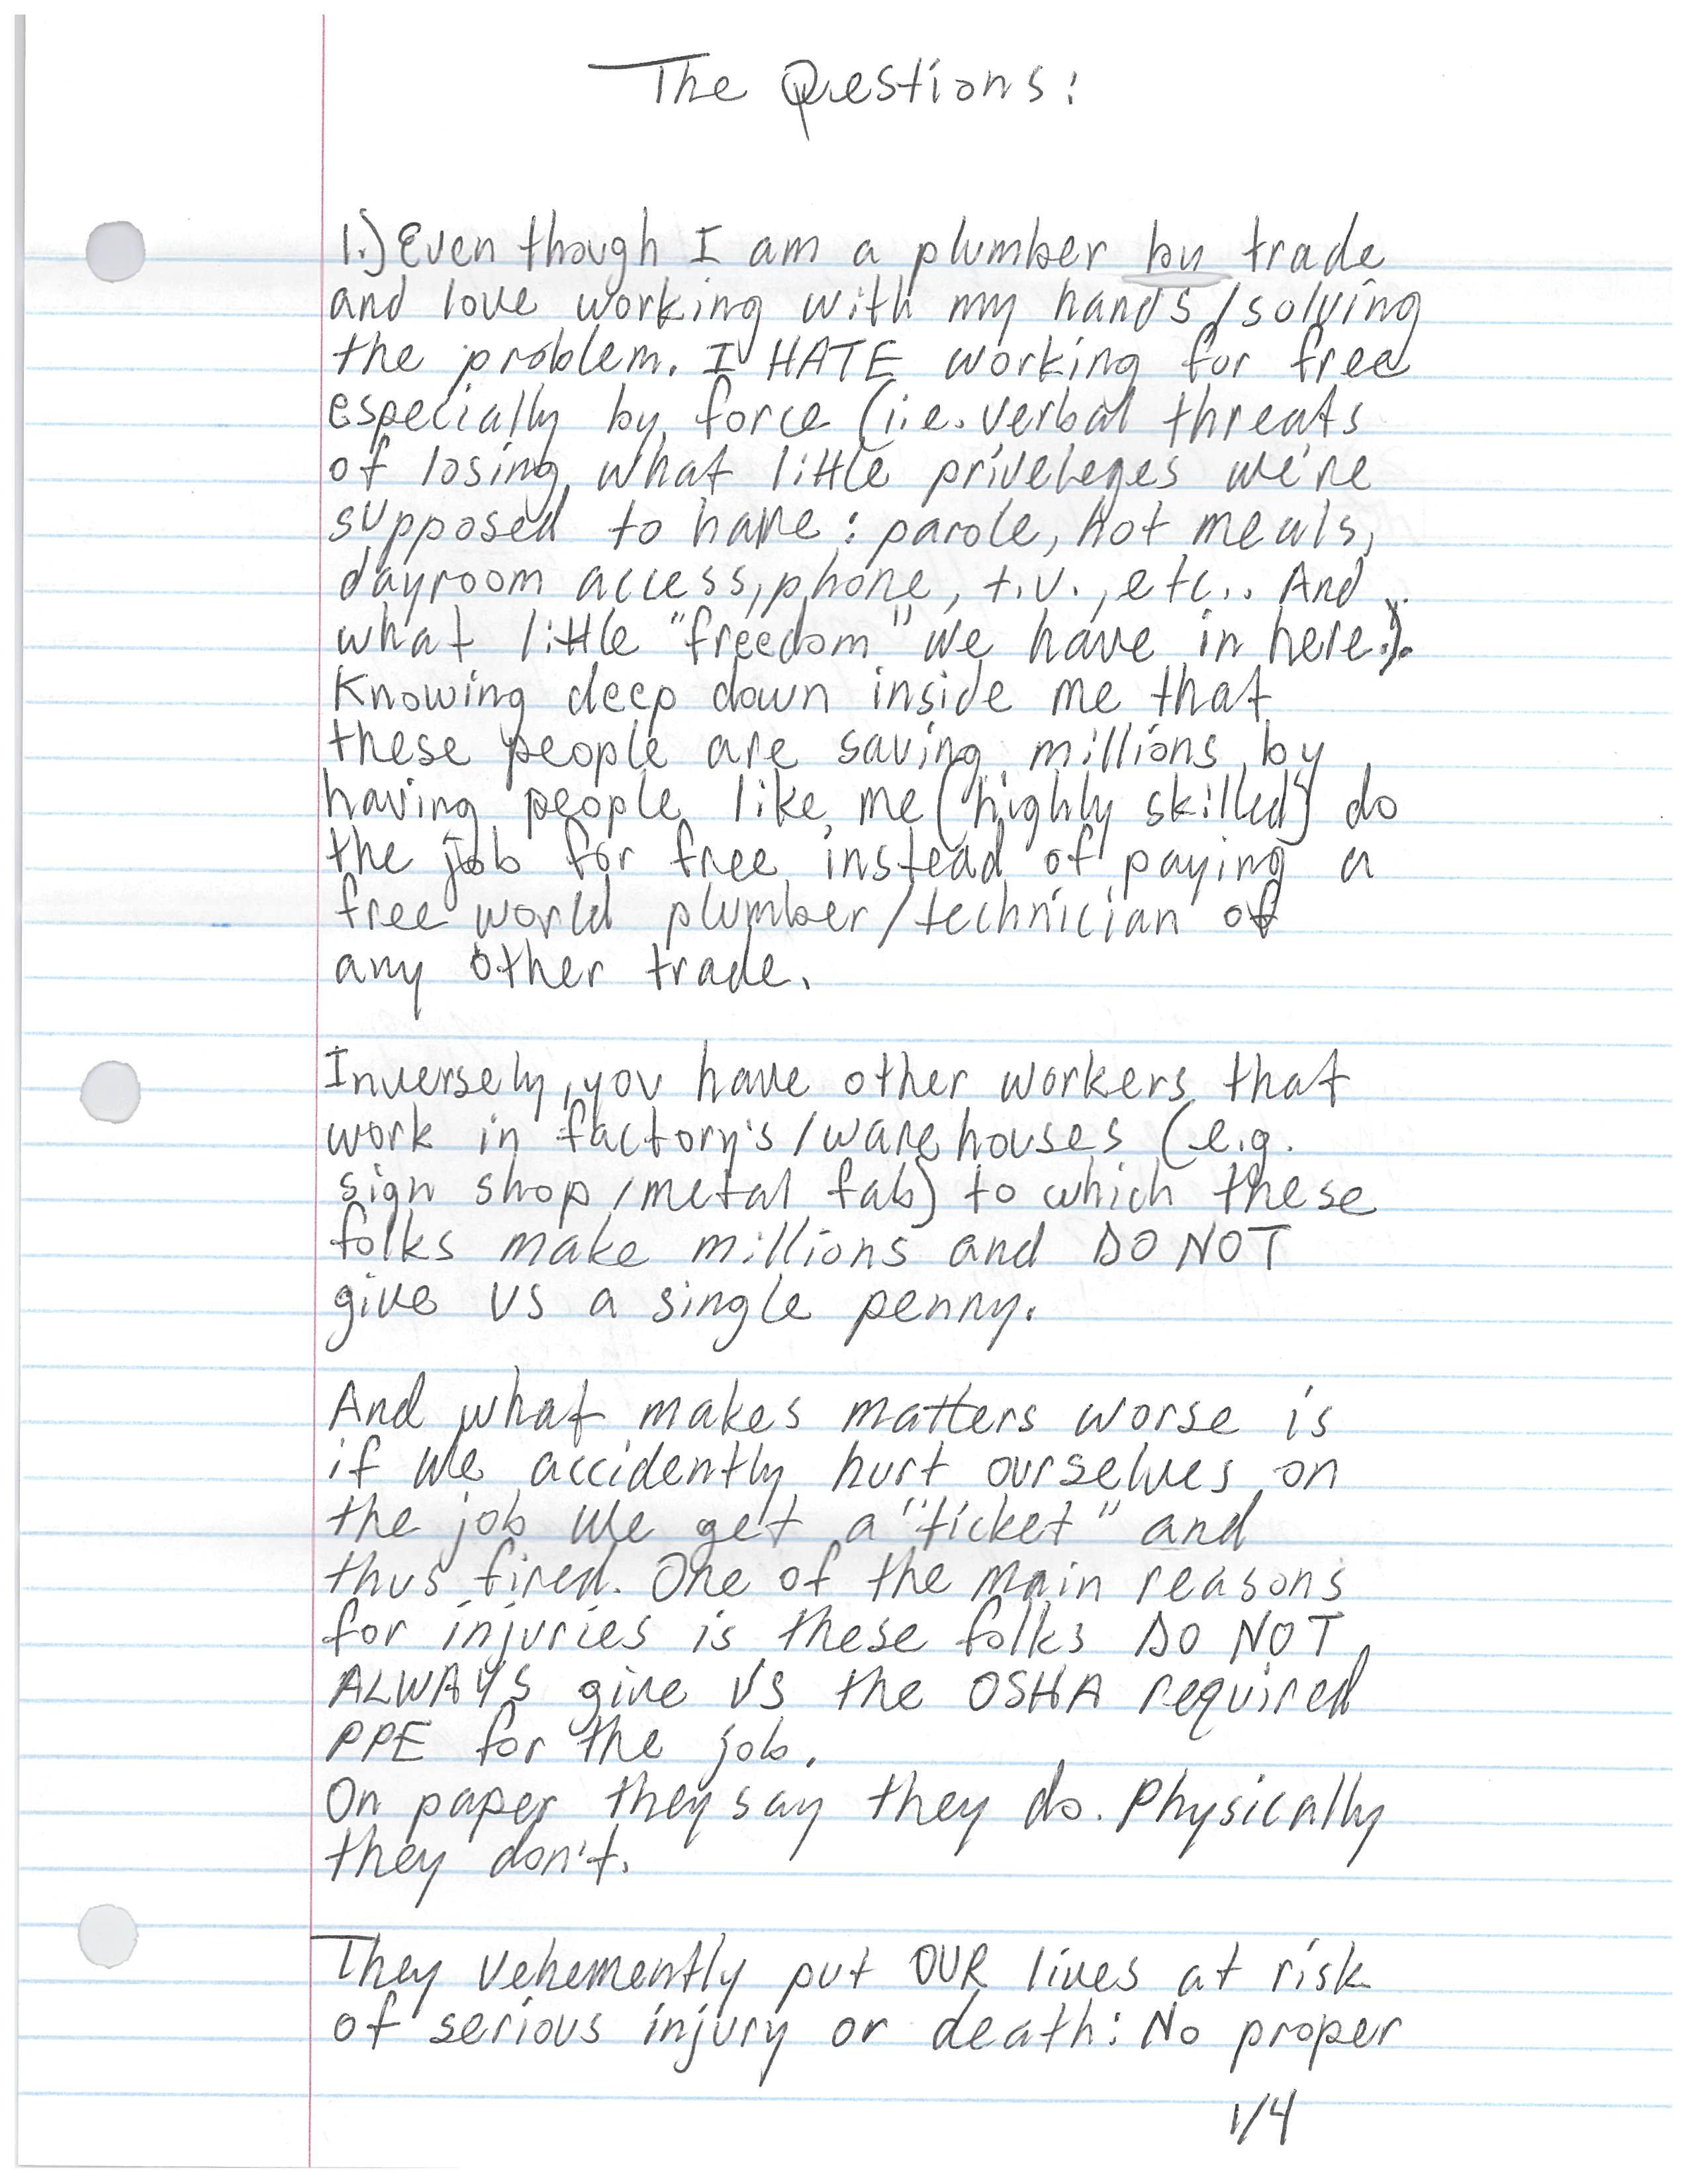 The Questions:
1.) Even though I am a plumber by trade
and love working with my hands/solving
the problem. I HATE working for free
especially by force (i.e. verbal threats
of losing what little priveleges we're
supposed to have: parole, hot meals,
dayroom access, phone, t.v., etc.. And
what little "freedom" we have in here.).
Knowing deep down inside me that
these people are saving millions by
having people like me (highly skilled) do
the job for free instead of paying a
free world plumber/technician of
any other trade.
Inversely, you have other workers that
work in factory's/warehouses (e.g.
sign shop/metal fab) to which these
folks make millions and DO NOT
give us a single penny.
And what makes matters worse is
if we accidently hurt ourselves on
the job we get a "ticket" and
thus fired. One of the main reasons
for injuries is these folks DO NOT
ALWAYS give us the OSHA required
PPE for the job.
On paper they say they do. Physically
they don't.
They vehemently put OUR lives at risk
of serious injury or death: No proper
1/4